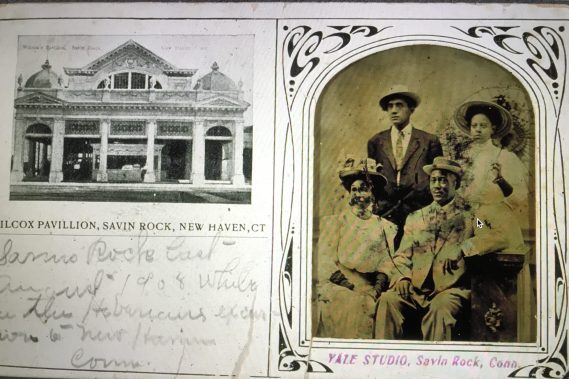 Wilcox's Pavilion, Savin Rock, New Haven, Conn.
ILCOX PAVILLION, SAVIN ROCK, NEW HAVEN,CT
Savin Rock last
August 1908 While
on the Hibernians excur
ion to New Haven
Conn.
YALE STUDIO, Savin Rock, Conn.